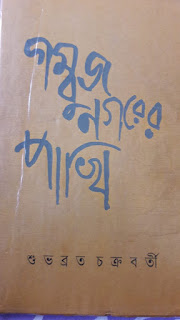 গম্বুজ
নগরের
পাখি
শুভব্রত চক্রবর্তী